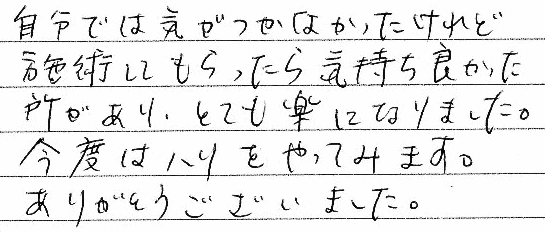 自分では気がつかなかったけれど
施術してもらったら気持ち良かった
所があり、とても楽になりました。
今度はハリをやってみます。
ありがとうございました。